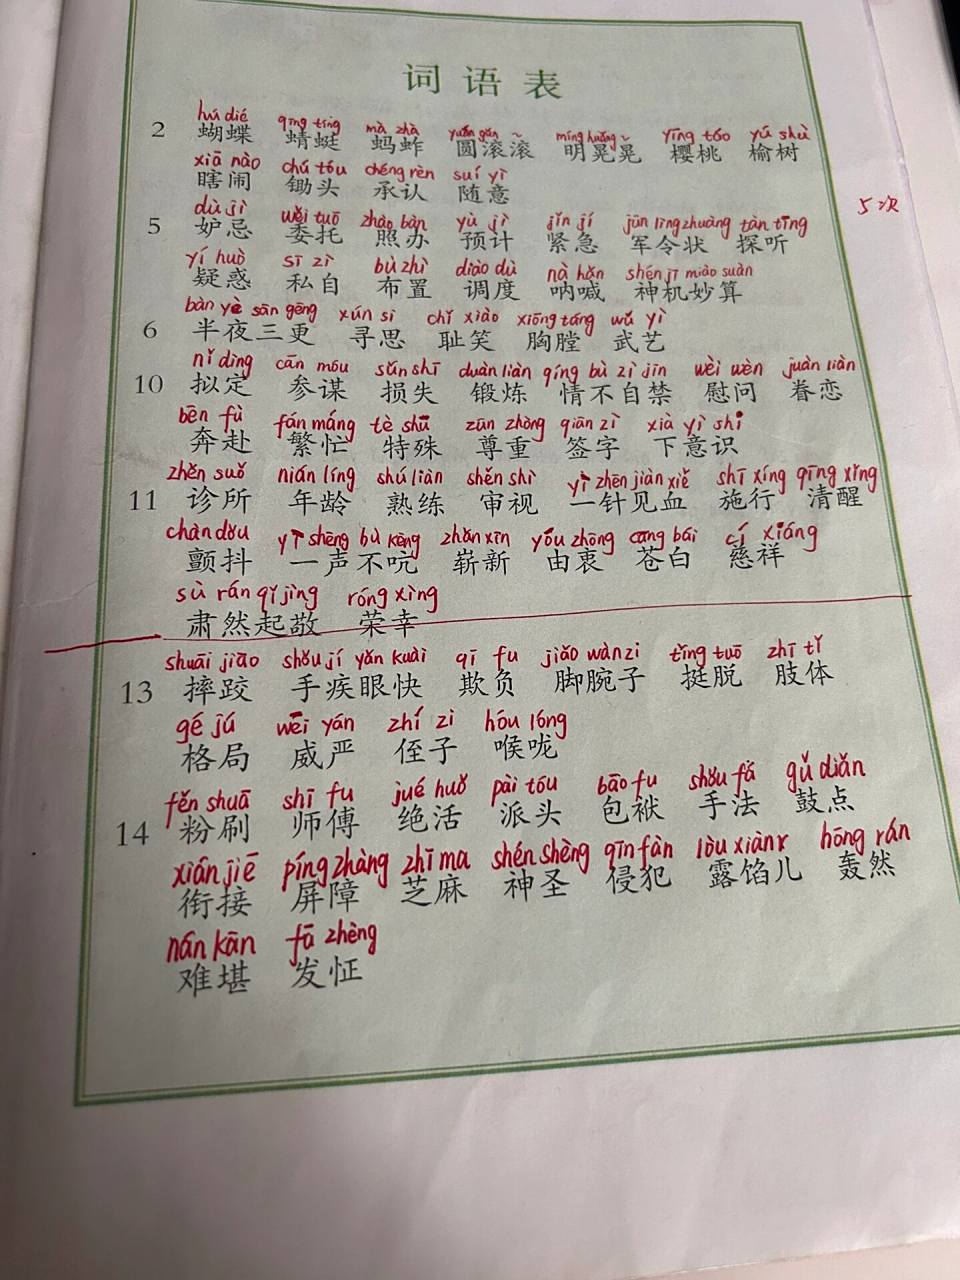 词语表
hú dié qīng tíng mà zhà yuán gǔn míng huǎng yīng táo yú shù
2 蝴蝶 蜻蜓 蚂蚱 圆滚滚 明晃晃 樱桃 榆树
xiā nào chú tóu chéng rèn suí yì
瞎闹 锄头 承认 随意
5次
dù jì wěi tuō zhào bàn yù jì jǐn jí jūn lìng zhuàng tàn tīng
5 妒忌 委托 照办 预计 紧急 军令状 探听
yí huò sī zì bù zhì diào dù nà hǎn shén jī miào suàn
疑惑 私自 布置 调度 呐喊 神机妙算
bàn yè sān gēng xún si chǐ xiào xiōng táng wǔ yì
6 半夜三更 寻思 耻笑 胸膛 武艺
nǐ dìng cān móu sǔn shī duàn liàn qíng bù zì jīn wèi wèn juàn liàn
10 拟定 参谋 损失 锻炼 情不自禁 慰问 眷恋
bēn fù fán máng tè shū zūn zhòng qiān zì xià yì shí
奔赴 繁忙 特殊 尊重 签字 下意识
zhěn suǒ nián líng shú liàn shěn shì yī zhēn jiàn xiě shī xíng qīng xǐng
11 诊所 年龄 熟练 审视 一针见血 施行 清醒
chàn dǒu yī shēng bù kēng zhǎn xīn yóu zhōng cang bái cí xiáng
颤抖 一声不吭 崭新 由衷 苍白 慈祥
sù rán qǐ jìng róng xìng
肃然起敬 荣幸
shuāi jiāo shǒu jí yǎn kuài qī fu jiǎo wàn zi tǐng tuō zhī tǐ
13 摔跤 手疾眼快 欺负 脚腕子 挺脱 肢体
gé jú wēi yán zhí zi hóu lóng
格局 威严 侄子 喉咙
fěn shuā shī fu jué huó pài tóu bāo fu shǒu fǎ gǔ diǎn
14 粉刷 师傅 绝活 派头 包袱 手法 鼓点
xián jiē píng zhàng zhī ma shén shèng qīn fàn lòu xiànr hōng rán
衔接 屏障 芝麻 神圣 侵犯 露馅儿 轰然
nán kān fā zhèng
难堪 发怔